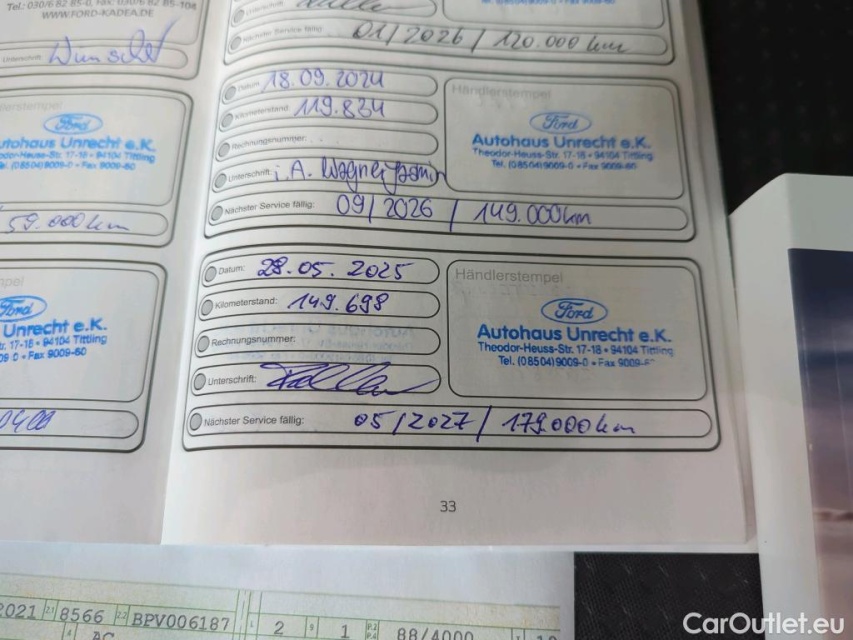 Tel.: 030/6 82 85-0, Fax: 030/6 82 85-104
WWW.FORD-KADEA.DE
Unterschrift:
Nächster Service fällig: 01/2026 / 120.000 km
Händlerstempel
Ford
Autohaus Unrecht e.K.
Theodor-Heuss-Str. 17-18 • 94104 Tittling
Tel. (08504)9009-0 • Fax 9009-60
59.000 km
Datum: 18.09.2024
Kilometerstand: 119.834
Rechnungsnummer:
Unterschrift: i.A.
Nächster Service fällig: 09/2026 / 149.000km
Händlerstempel
Ford
Autohaus Unrecht e.K.
Theodor-Heuss-Str. 17-18 • 94104 Tittling
Tel. (08504)9009-0 • Fax 9009-60
Ford
Unrecht e.K.
17-18 • 94104 Tittling
Fax 9009-60
Datum: 28.05.2025
Kilometerstand: 149.698
Rechnungsnummer:
Unterschrift:
Nächster Service fällig: 05/2027 / 179.000km
Händlerstempel
Ford
Autohaus Unrecht e.K.
Theodor-Heuss-Str. 17-18 • 94104 Tittling
Tel. (08504)9009-0 • Fax 9009-6
33
2021 2.1 8566 2.2 BPV006187 2 1 88/4000
AC
CarOutlet.eu